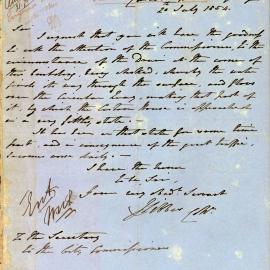 14 July 1854.
Sir
I request that you will have the goodness
to ask the attention of the Commissioners, to the
circumstance of the Drain at the corner of
this being choked, whereby the water
finds its way through the surface and flows
over the Making that part
of it, by which the Custom House is approached
in a very filthy state. -
It has been in that state for some time
past; and in consequence of the great traffic,
become worse daily. -
I have the honor
to be Sir,
Your very Obedt. Servant
To the Secretary
to the City Commissioners